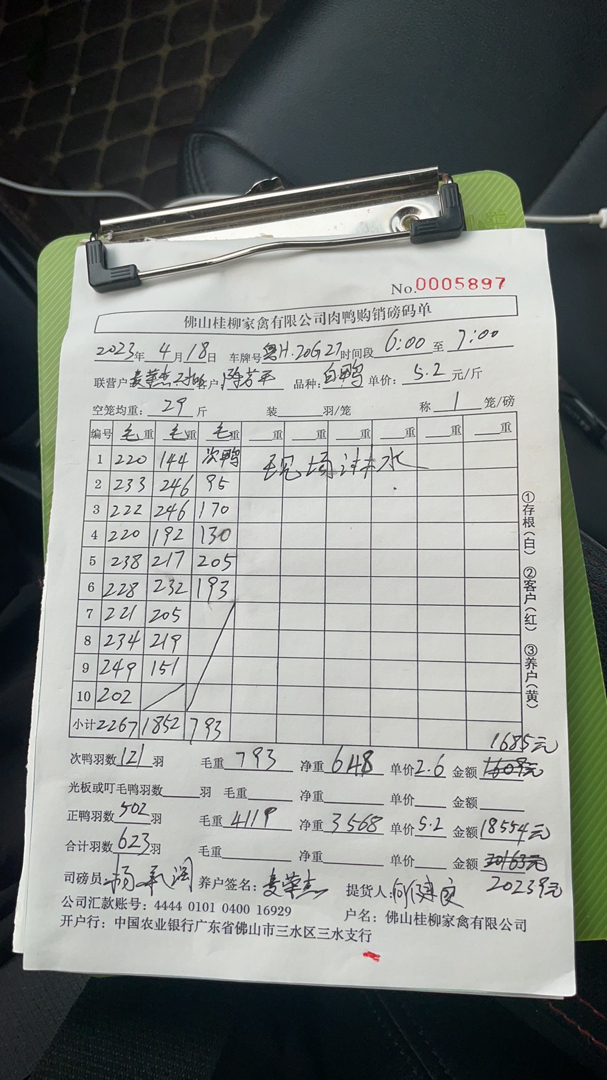 No.0005897
佛山桂柳家禽有限公司肉鸭购销磅码单
2023年 4月18日 车牌号粤H·20G27时间段 6:00 至 7:00
联营户麦荣杰 客户 陈芳平 品种：白鸭 单价：5.2 元/斤
空笼均重：29 斤 装 羽/笼 称 1 笼/磅
编号 毛重 毛重 毛重 重 重 重 重 重 重
1 220 144 次鸭 现场注水
2 233 246 95
3 222 246 170
4 220 192 130
5 238 217 205
6 228 232 193
7 221 205
8 234 219
9 249 151
10 202
小计 2267 1852 793
①存根（白） ②客户（红） ③养户（黄）
1685元
次鸭羽数121羽 毛重 793 净重 648 单价2.6 金额 1609元
光板或叮毛鸭羽数 羽 毛重 净重 单价 金额
正鸭羽数502羽 毛重 4119 净重 3568 单价5.2 金额18554元
合计羽数623羽 毛重 净重 单价 金额 20163元
20239元
司磅员：杨承润 养户签名：麦荣杰 提货人：
公司汇款账号：4444 0101 0400 16929 户名：佛山桂柳家禽有限公司
开户行：中国农业银行广东省佛山市三水区三水支行